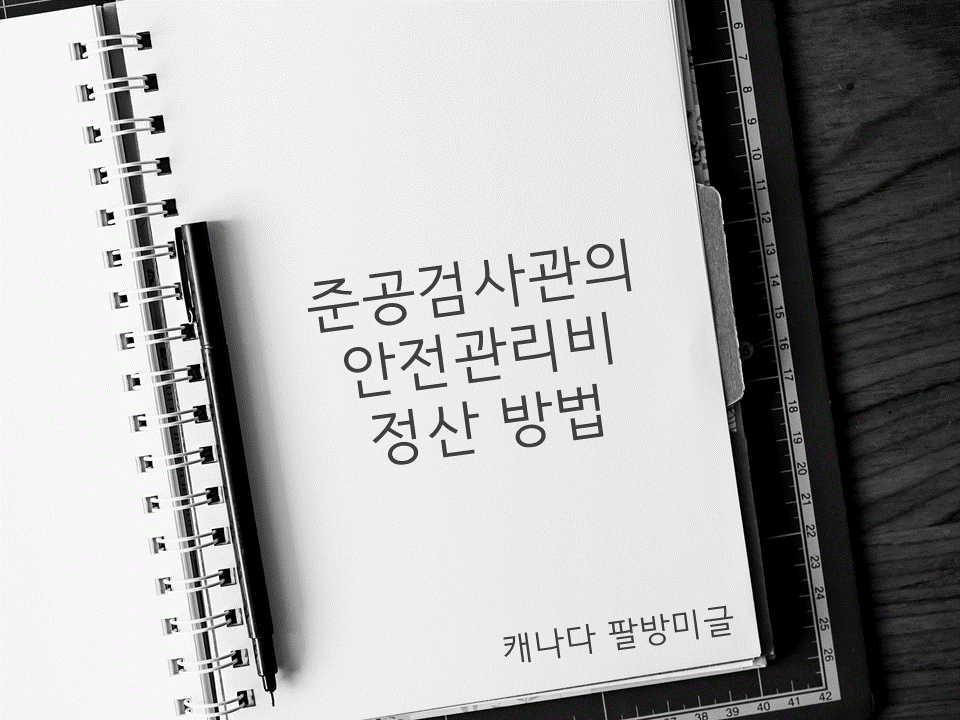 준공검사관의
안전관리비
정산 방법
캐나다 팔방미글
6
7
8
9
10
11
12
13
14
15
16
17
18
19
20
21
22
23
24
25
26
38 39 40 41 42